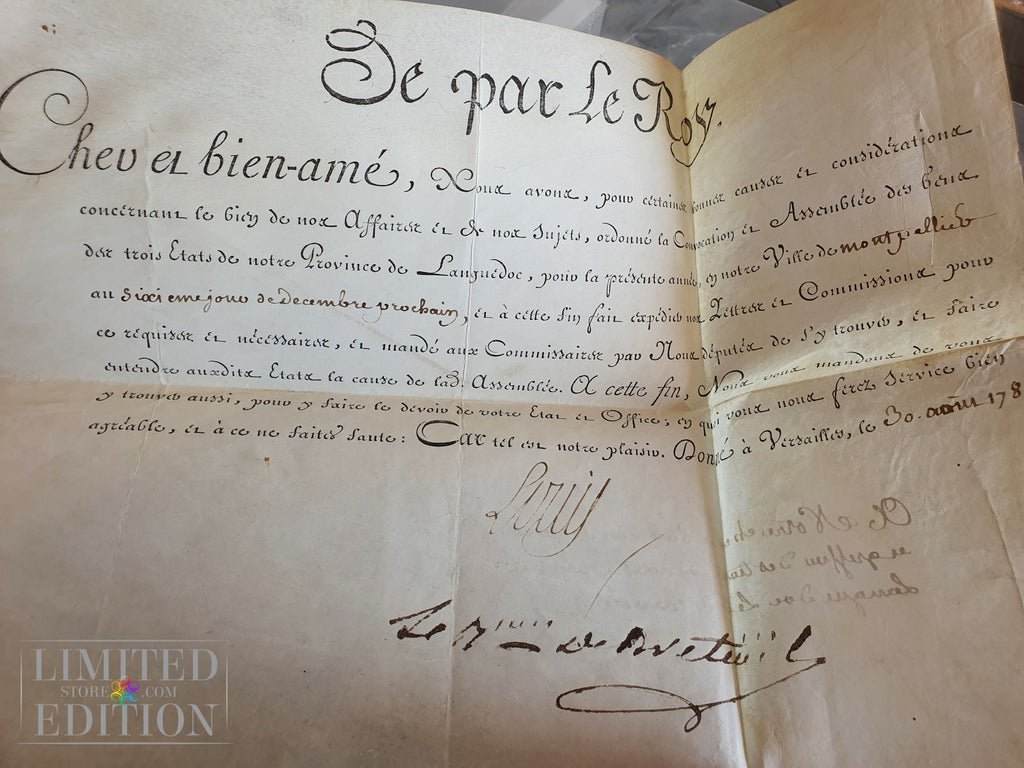 De par Le Roy.
Cher et bien-amé, Nous avons, pour certaines bonnes causes et considérations
concernant le bien de nos Affaires et de nos Sujets, ordonné la Convocation et Assemblée des Gens
des trois Etats de notre Province de Languedoc, pour la présente année, en notre Ville de montpellier
au sixieme jour de decembre prochain, et à cette fin fait expédier nos Lettres et Commissions pour
ce requises et nécessaires, et mandé aux Commissaires par Nous députés de s'y trouver, et faire
entendre auxdits Etats la cause de lad. Assemblée. A cette fin, Nous vous mandons de vous
y trouver aussi, pour y faire le devoir de votre Etat et Office; en quoi vous nous ferez Service bien
agréable, et à ce ne faites faute: Car tel est notre plaisir. Donné à Versailles, le 30. aoust 178
Louis
A Notre che
et
Languedoc Le
Le Bon de Breteüil
LIMITED
STORE .COM
EDITION